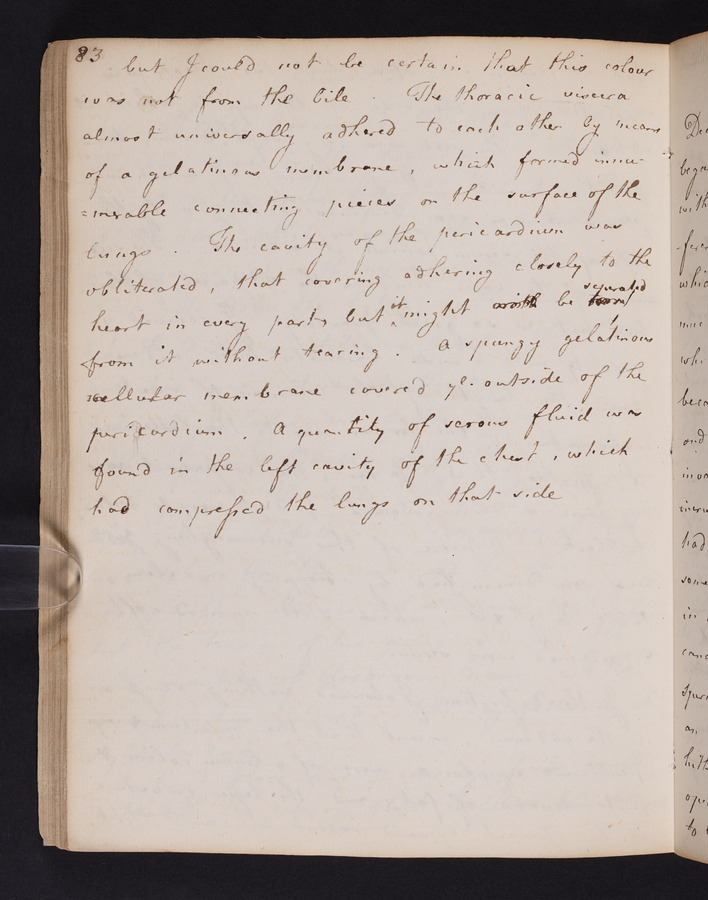 83
but I could not be certain that this colour
was not from the bile . The thoracic viscera
almost universally adhered to each other by means
of a gelatinous membrane , which formed innu-
=merable connecting pieces on the surface of the
lungs . The cavity of the pericardium was
obliterated , that covering adhering closely to the
heart in every part, but it might be separated
from it without tearing . A spungy gelatinous
cellular membrane covered ye. outside of the
pericardium . A quantity of serous fluid was
found in the left cavity of the chest , which
had compressed the lungs on that side